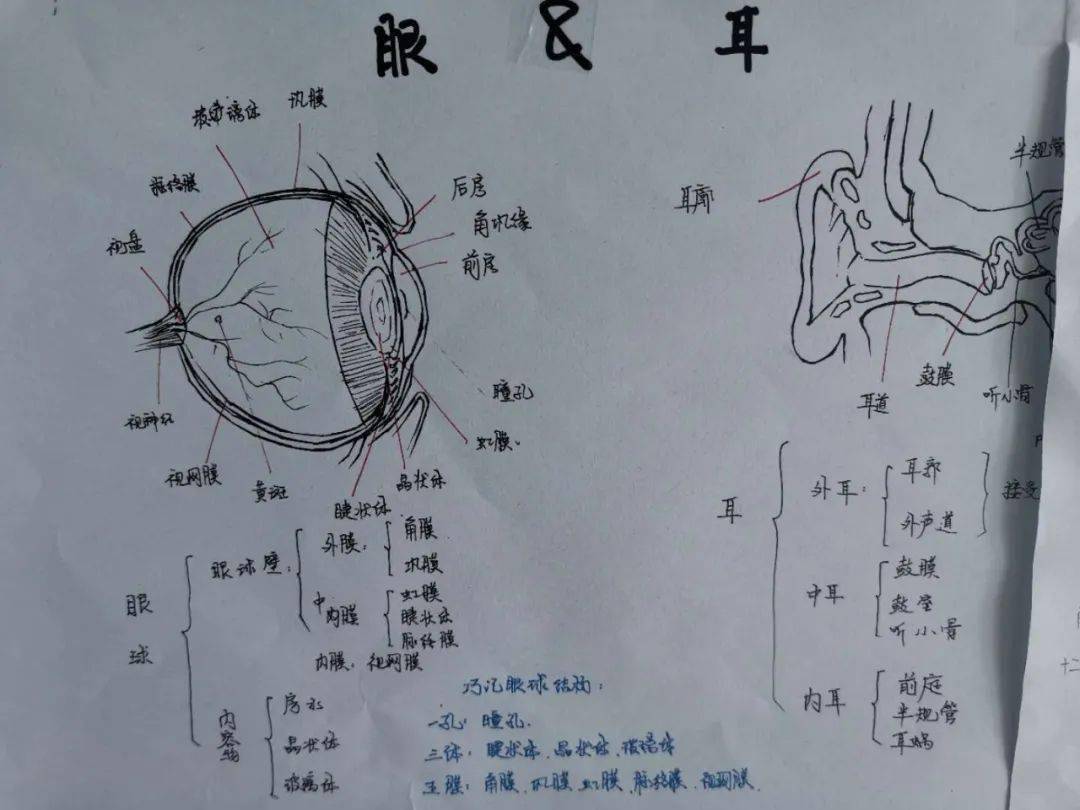 眼 & 耳
玻璃体
巩膜
脉络膜
视盘
后房
角巩缘
前房
瞳孔
虹膜
视神经
视网膜
黄斑
睫状体
晶状体
耳廓
半规管
鼓膜
耳道
听小骨
眼球
眼球壁:
外膜:
角膜
巩膜
中内膜
虹膜
睫状体
脉络膜
内膜: 视网膜
内容物
房水
晶状体
玻璃体
巧记眼球结构:
一孔: 瞳孔.
三体: 睫状体、晶状体、玻璃体
五膜: 角膜、巩膜、虹膜、脉络膜、视网膜.
耳
外耳:
耳郭
外声道
接受
中耳
鼓膜
鼓室
听小骨
内耳
前庭
半规管
耳蜗
十二